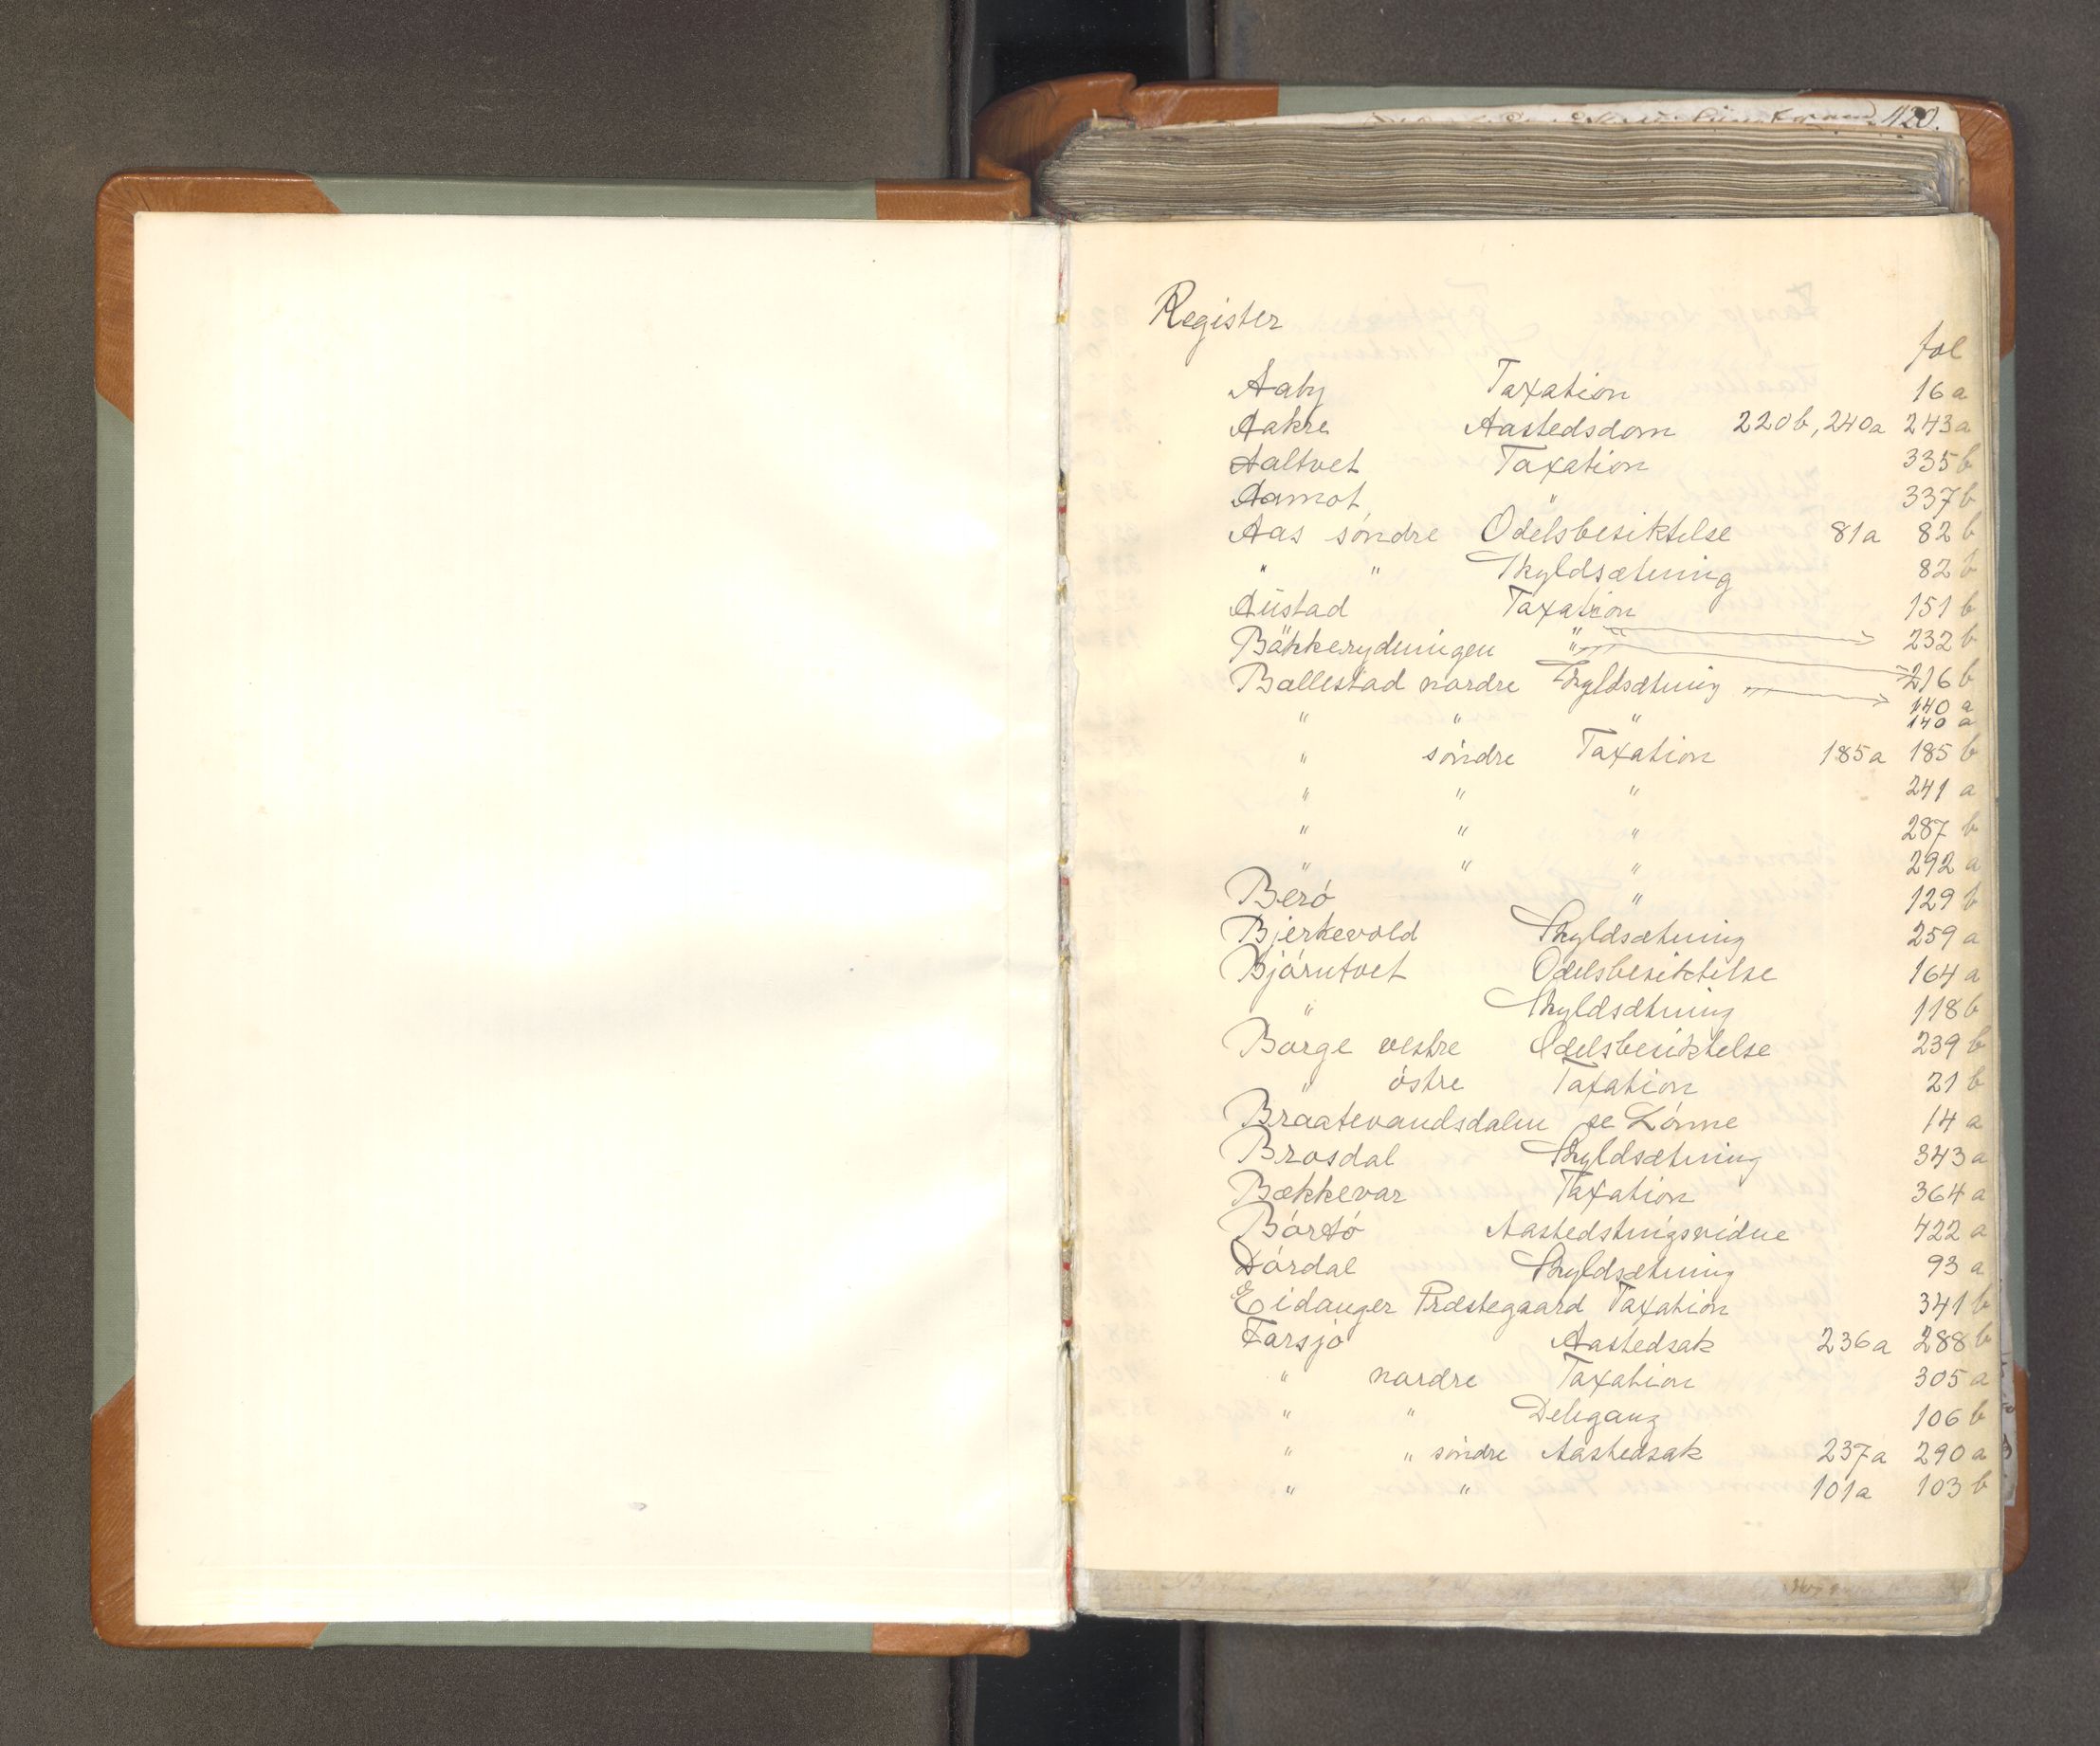 1120.
Register
fol
Aaby Taxation 16 a
Aakre Aastedsdom 220 b, 240 a 243 a
Aaltvet Taxation 335 b
Aamot " 337 b
Aas söndre Odelsbesiktelse 81 a 82 b
" " Skyldsætning 82 b
Aüstad Taxation 151 b
Bäkkerydningen " 232 b
Ballestad nordre Skyldsætning 216 b
140 a
" " " 140 a
" söndre Taxation 185 a 185 b
" " " 241 a
" " " 287 b
" " " 292 a
Berö " 129 b
Bjerkevold Skyldsætning 259 a
Bjórntvet Odelsbesiktelse 164 a
" Skyldsætning 118 b
Borge vestre Odelsbesiktelse 239 b
" östre Taxation 21 b
Braatevandsdalen se Lónne 14 a
Brosdal Skyldsætning 343 a
Bækkevar Taxation 364 a
Bórtó Aastedstingsvidne 422 a
Dórdal Skyldsætning 93 a
Eidanger Præstegaard Taxation 341 b
Farsjó Aastedsak 236 a 288 b
" nordre Taxation 305 a
" " Delegang 106 b
" " söndre Aastedsak 237 a 290 a
" " 101 a 103 b